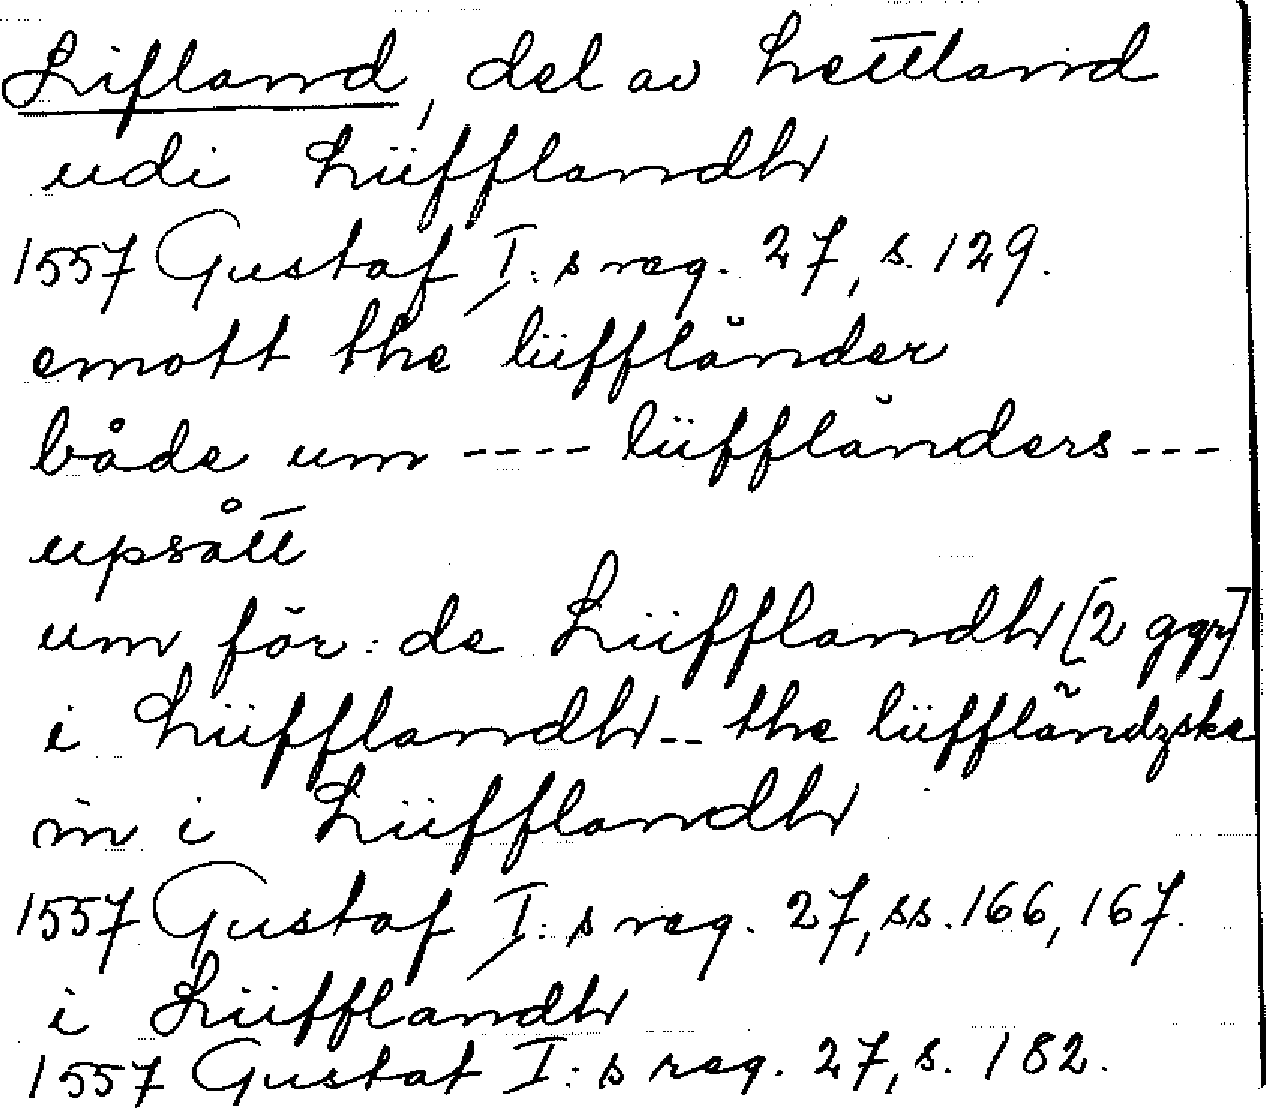 Lifland, del av Lettland
udi Lüfflandh
1557 Gustaf I:s reg. 27, s. 129.
emott the lüffländer
både um ---- lüffländers ---
upsått
um för: de Lüfflandh [2 ggr]
i Lüfflandh -- the lüffländzske
in i Lüfflandh
1557 Gustaf I:s reg. 27, ss. 166, 167.
i Lüfflandh
1557 Gustaf I:s reg. 27, s. 182.